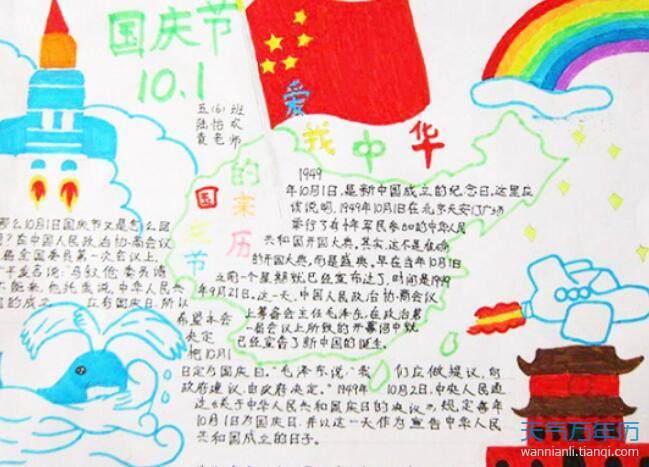 国庆节
10.1
五(6)班
陆怡欢
袁老师
爱我中华
国庆节的来历
1949
年10月1日,是新中国成立的纪念日,这里应
该说明,1949年10月1日在北京天安门广场
举行了有十年军民参加的中华人民
共和国开国大典。其实,这不是准确
的开国大典,而是盛典。早在当年10月1日
之前一个星期就已经宣布过了,时间是1949
年9月21日。这一天,中国人民政治协商会议
上筹备会主任毛泽东,在政治第
一届会议上所致的开幕词中就
已经宣告了新中国的诞生。
那么10月1日国庆节又是怎么回
?在中国人民政治协商会议
届全国委员第一次会议上,
马叙伦委员请
不能来,他托我说,中华人民共
的成立 应有国庆日,所以
希望本会
决定
把10月1
日定为国庆日。“毛泽东说:“我们应做提议,向
政府建议,由政府决定。”1949年10月2日,中央人民通
过《关于中华人民共和国国庆日的决议》规定每年
10月1日为国庆日,并以这一天作为宣告中华人民
共和国成立的日子。
天气万年历
wannianli.tianqi.com